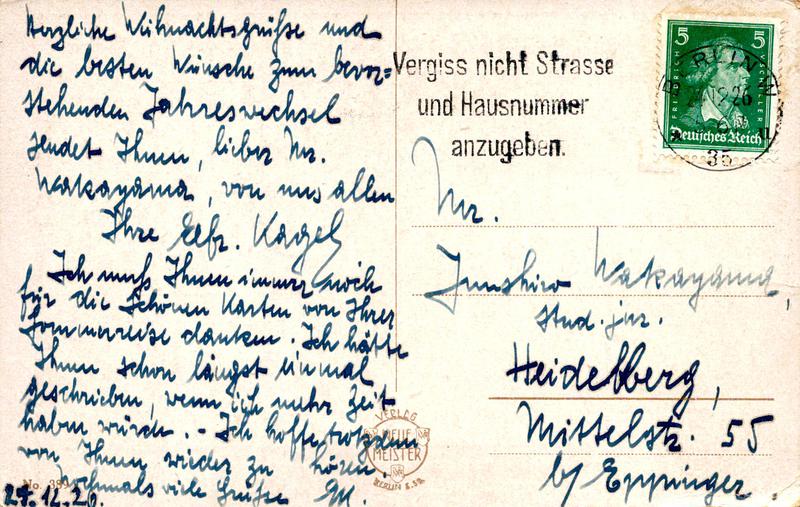 Herzliche Weihnachtsgrüße und
die besten Wünsche zum bevor-
stehenden Jahreswechsel
sendet Ihnen, lieber Mr.
Wakayama, von uns allen
Ihre Elfr. Kagel
Ich muß Ihnen immer noch
für die schönen Karten von Ihrer
Sommerreise danken. Ich hätte
Ihnen schon längst einmal
geschrieben, wenn ich mehr Zeit
haben würde. - Ich hoffe, trotzdem
von Ihnen wieder zu hören.
Nochmals viele Grüße
No.
VERLAG
NEUE
MEISTER
BERLIN
Vergiss nicht Strasse
und Hausnummer
anzugeben.
5 5
FRIEDRICH SCHILLER
Deutsches Reich
BERLIN W
35
Mr.
Junshiro Wakayama,
stud. jur.
Heidelberg,
Mittelstr. 55
b/ Eppinger.